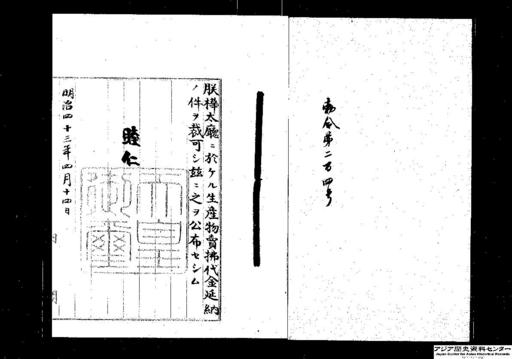 勅令第二百四号
朕樺太廳ニ於ケル生産物賣拂代金延納
ノ件ヲ裁可シ茲ニ之ヲ公布セシム
睦仁
天皇御璽
明治四十三年四月十四日
アジア歴史資料センター
Japan Center for Asian Historical Records